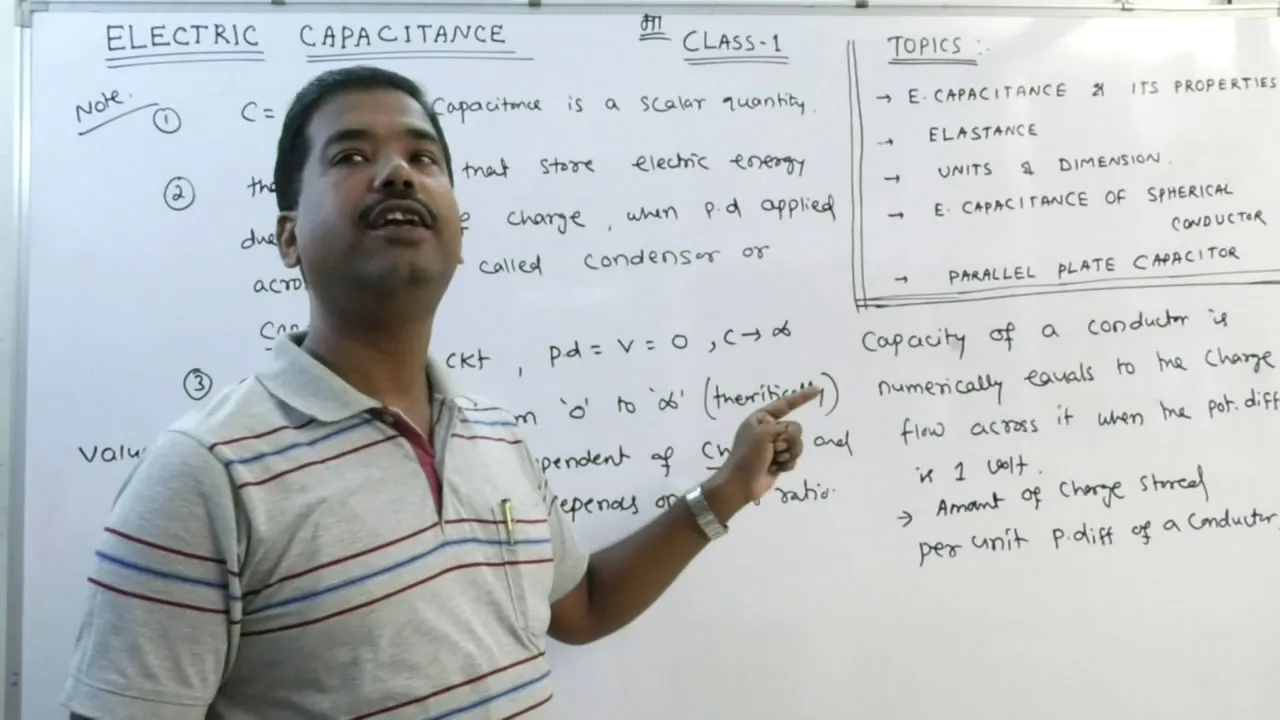 ELECTRIC CAPACITANCE
मा
CLASS-1
Note.
① C= Capacitance is a scalar quantity.
② that store electric energy
due charge, when p.d applied
called condensor or
③ ckt, p.d = V = 0, C → ∝
'0' to '∝' (theritically)
pendent of and
epends on ratio.
TOPICS :-
→ E. CAPACITANCE & ITS PROPERTIES
→ ELASTANCE
→ UNITS & DIMENSION.
→ E. CAPACITANCE OF SPHERICAL
CONDUCTOR
→ PARALLEL PLATE CAPACITOR
Capacity of a conductor is
numerically equals to the charge
flow across it when the pot. diff
is 1 volt.
→ Amount of charge stored
per unit p.diff of a conductor